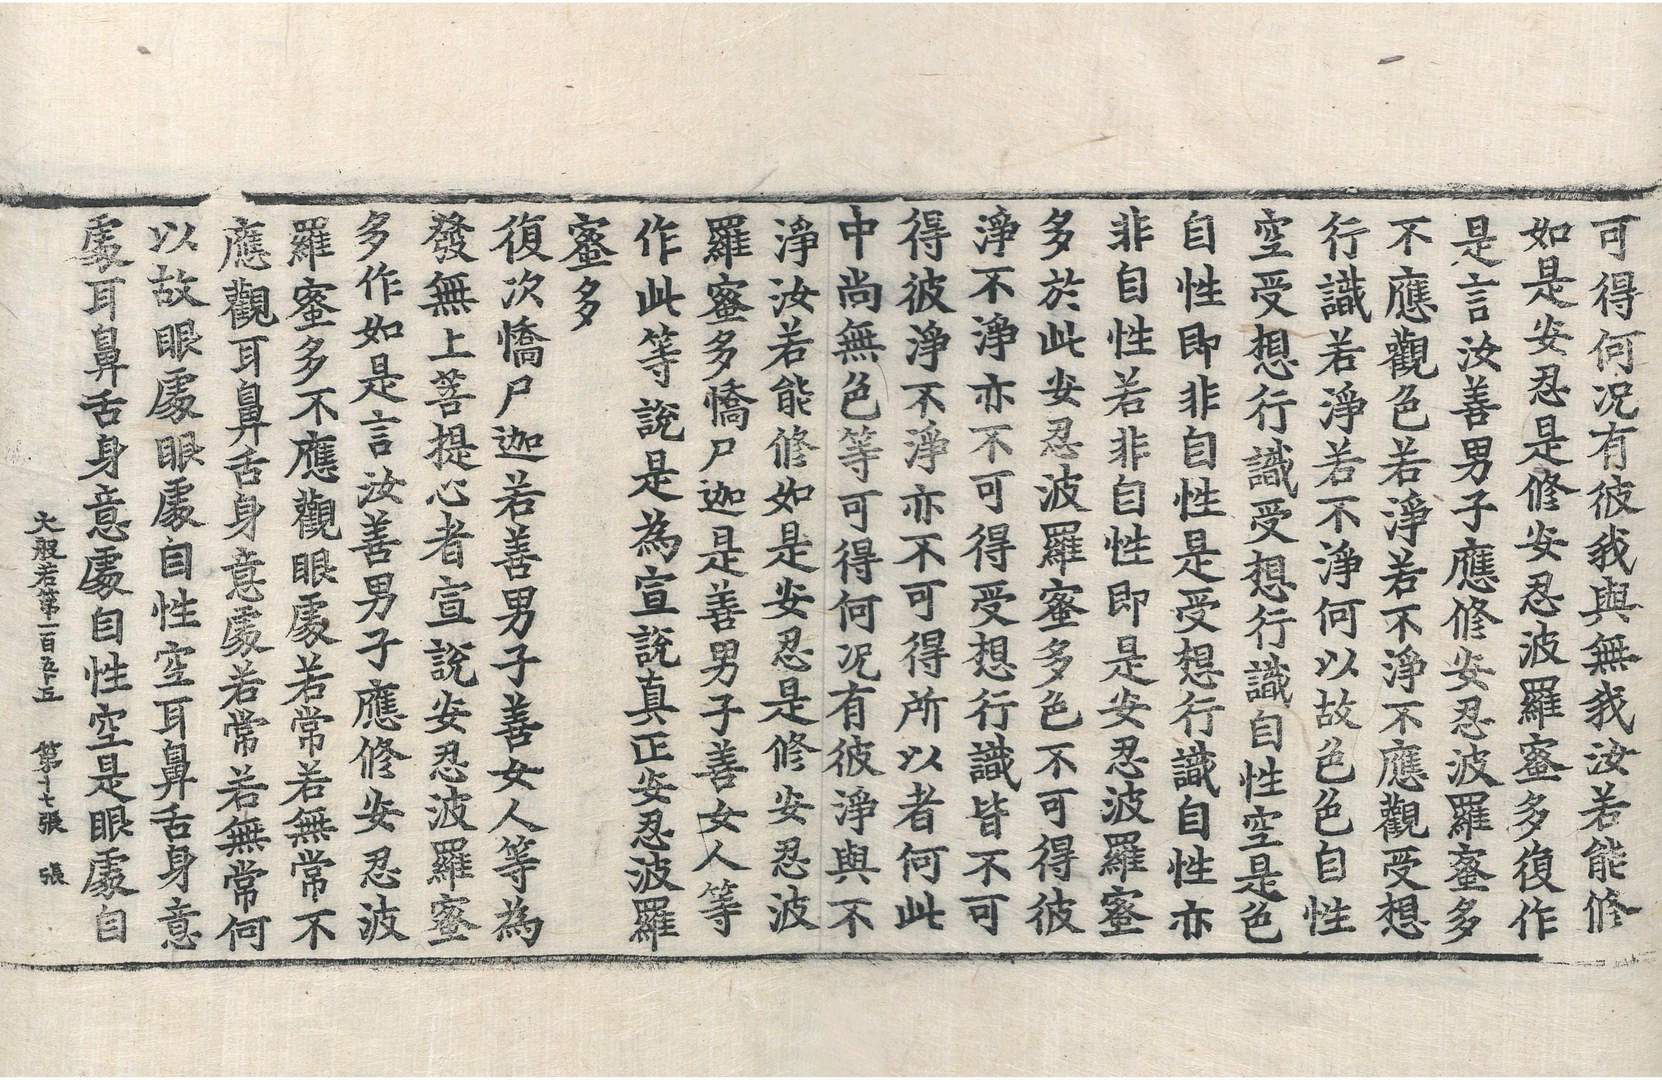 可得何況有彼我與無我汝若能修
如是安忍是修安忍波羅蜜多復作
是言汝善男子應修安忍波羅蜜多
不應觀色若淨若不淨不應觀受想
行識若淨若不淨何以故色色自性
空受想行識受想行識自性空是色
自性即非自性是受想行識自性亦
非自性若非自性即是安忍波羅蜜
多於此安忍波羅蜜多色不可得彼
淨不淨亦不可得受想行識皆不可
得彼淨不淨亦不可得所以者何此
中尚無色等可得何況有彼淨與不
淨汝若能修如是安忍是修安忍波
羅蜜多憍尸迦是善男子善女人等
作此等說是為宣說真正安忍波羅
蜜多
復次憍尸迦若善男子善女人等為
發無上菩提心者宣說安忍波羅蜜
多作如是言汝善男子應修安忍波
羅蜜多不應觀眼處若常若無常不
應觀耳鼻舌身意處若常若無常何
以故眼處眼處自性空耳鼻舌身意
處耳鼻舌身意處自性空是眼處自
大般若第一百五十五 第十七張 張